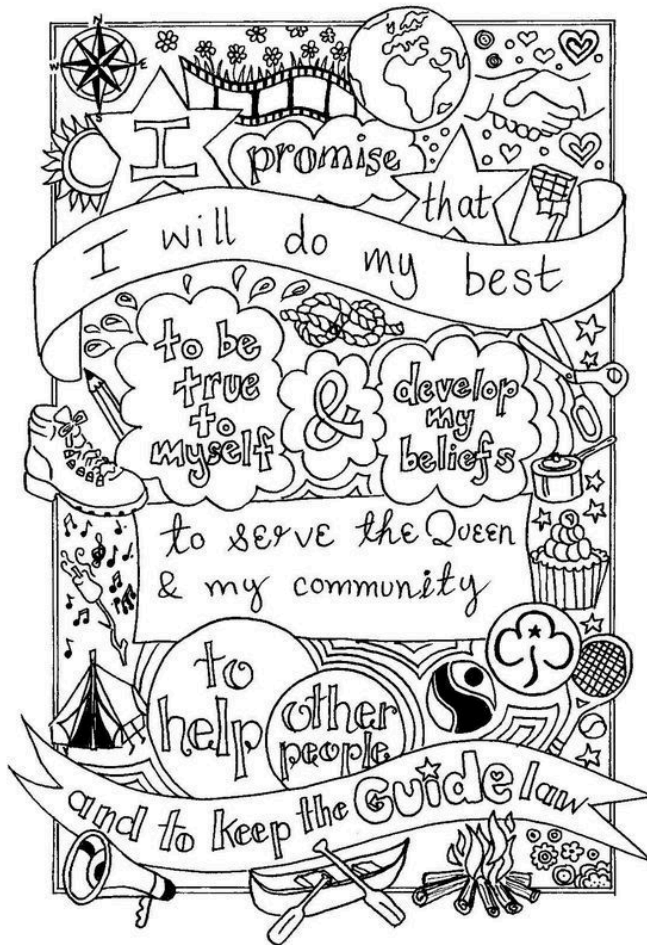 N
W E
S
I
promise
that
I will do my best
to be
true
to
myself
&
develop
my
beliefs
to serve the Queen
& my community
to
help
other
people
and to keep the Guide law